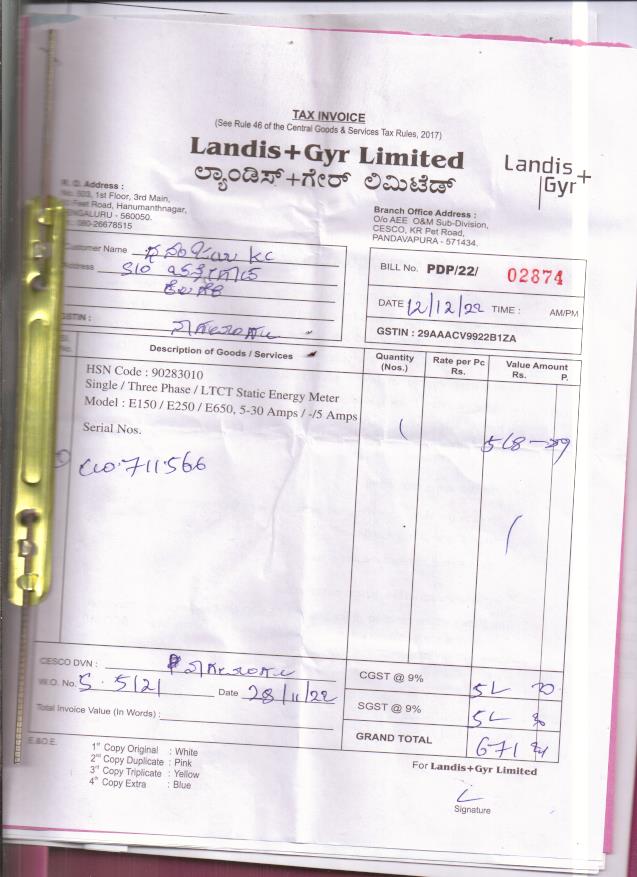 TAX INVOICE
(See Rule 46 of the Central Goods & Services Tax Rules, 2017)
Landis+Gyr Limited
ಲ್ಯಾಂಡಿಸ್+ಗೇರ್ ಲಿಮಿಟೆಡ್
Landis+
Gyr
Address :
1st Floor, 3rd Main,
Feet Road, Hanumanthnagar,
BENGALURU - 560050.
080-26678515
Branch Office Address :
O/o AEE O&M Sub-Division,
CESCO, KR Pet Road,
PANDAVAPURA - 571434.
Customer Name KC
Address S/O
GSTIN :
BILL No. PDP/22/ 02874
DATE 12/12/22 TIME : AM/PM
GSTIN : 29AAACV9922B1ZA
No. Description of Goods / Services Quantity (Nos.) Rate per Pc Rs. Value Amount Rs. P.
HSN Code : 90283010
Single / Three Phase / LTCT Static Energy Meter
Model : E150 / E250 / E650, 5-30 Amps / -/5 Amps
Serial Nos.
1
711566
CESCO DVN :
W.O. No. S. 5121 Date 28/11/22
Total Invoice Value (In Words) :
CGST @ 9%
SGST @ 9%
GRAND TOTAL 671
E.&O.E.
1st Copy Original : White
2nd Copy Duplicate : Pink
3rd Copy Triplicate : Yellow
4th Copy Extra : Blue
For Landis+Gyr Limited
Signature